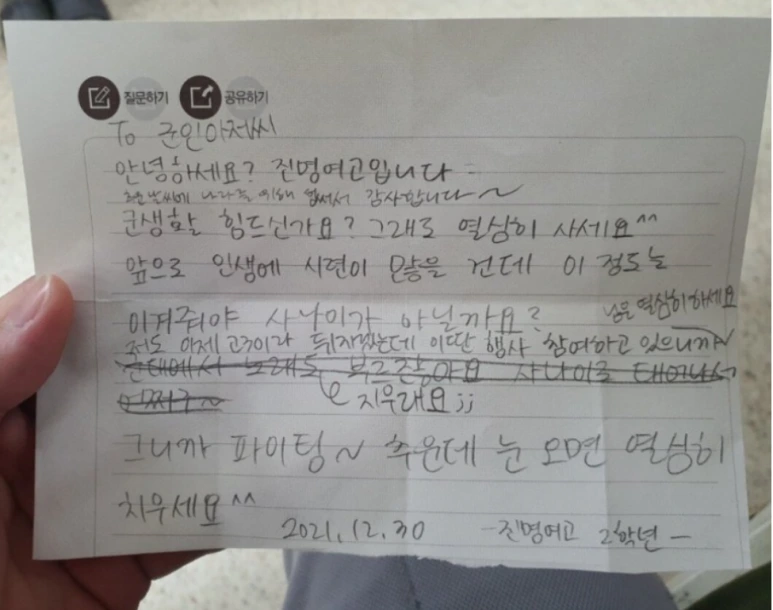 질문하기 공유하기
To 군인아저씨
안녕하세요? 진명여고입니다
추운 날씨에 나라를 위해 힘써서 감사합니다~
군생활 힘드신가요? 그래도 열심히 사세요^^
앞으로 인생에 시련이 많을 건데 이 정도는
이겨줘야 사나이가 아닐까요?
저도 이제 고3이라 뒤지겠는데 이딴 행사 참여하고 있으니까~
님은 열심히 하세요
군대에서 노래도 부르잖아요 사나이로 태어나서
어쩌구~
지우래요;;
그니까 파이팅~ 추운데 눈 오면 열심히
치우세요^^
2021.12.30 -진명여고 2학년-